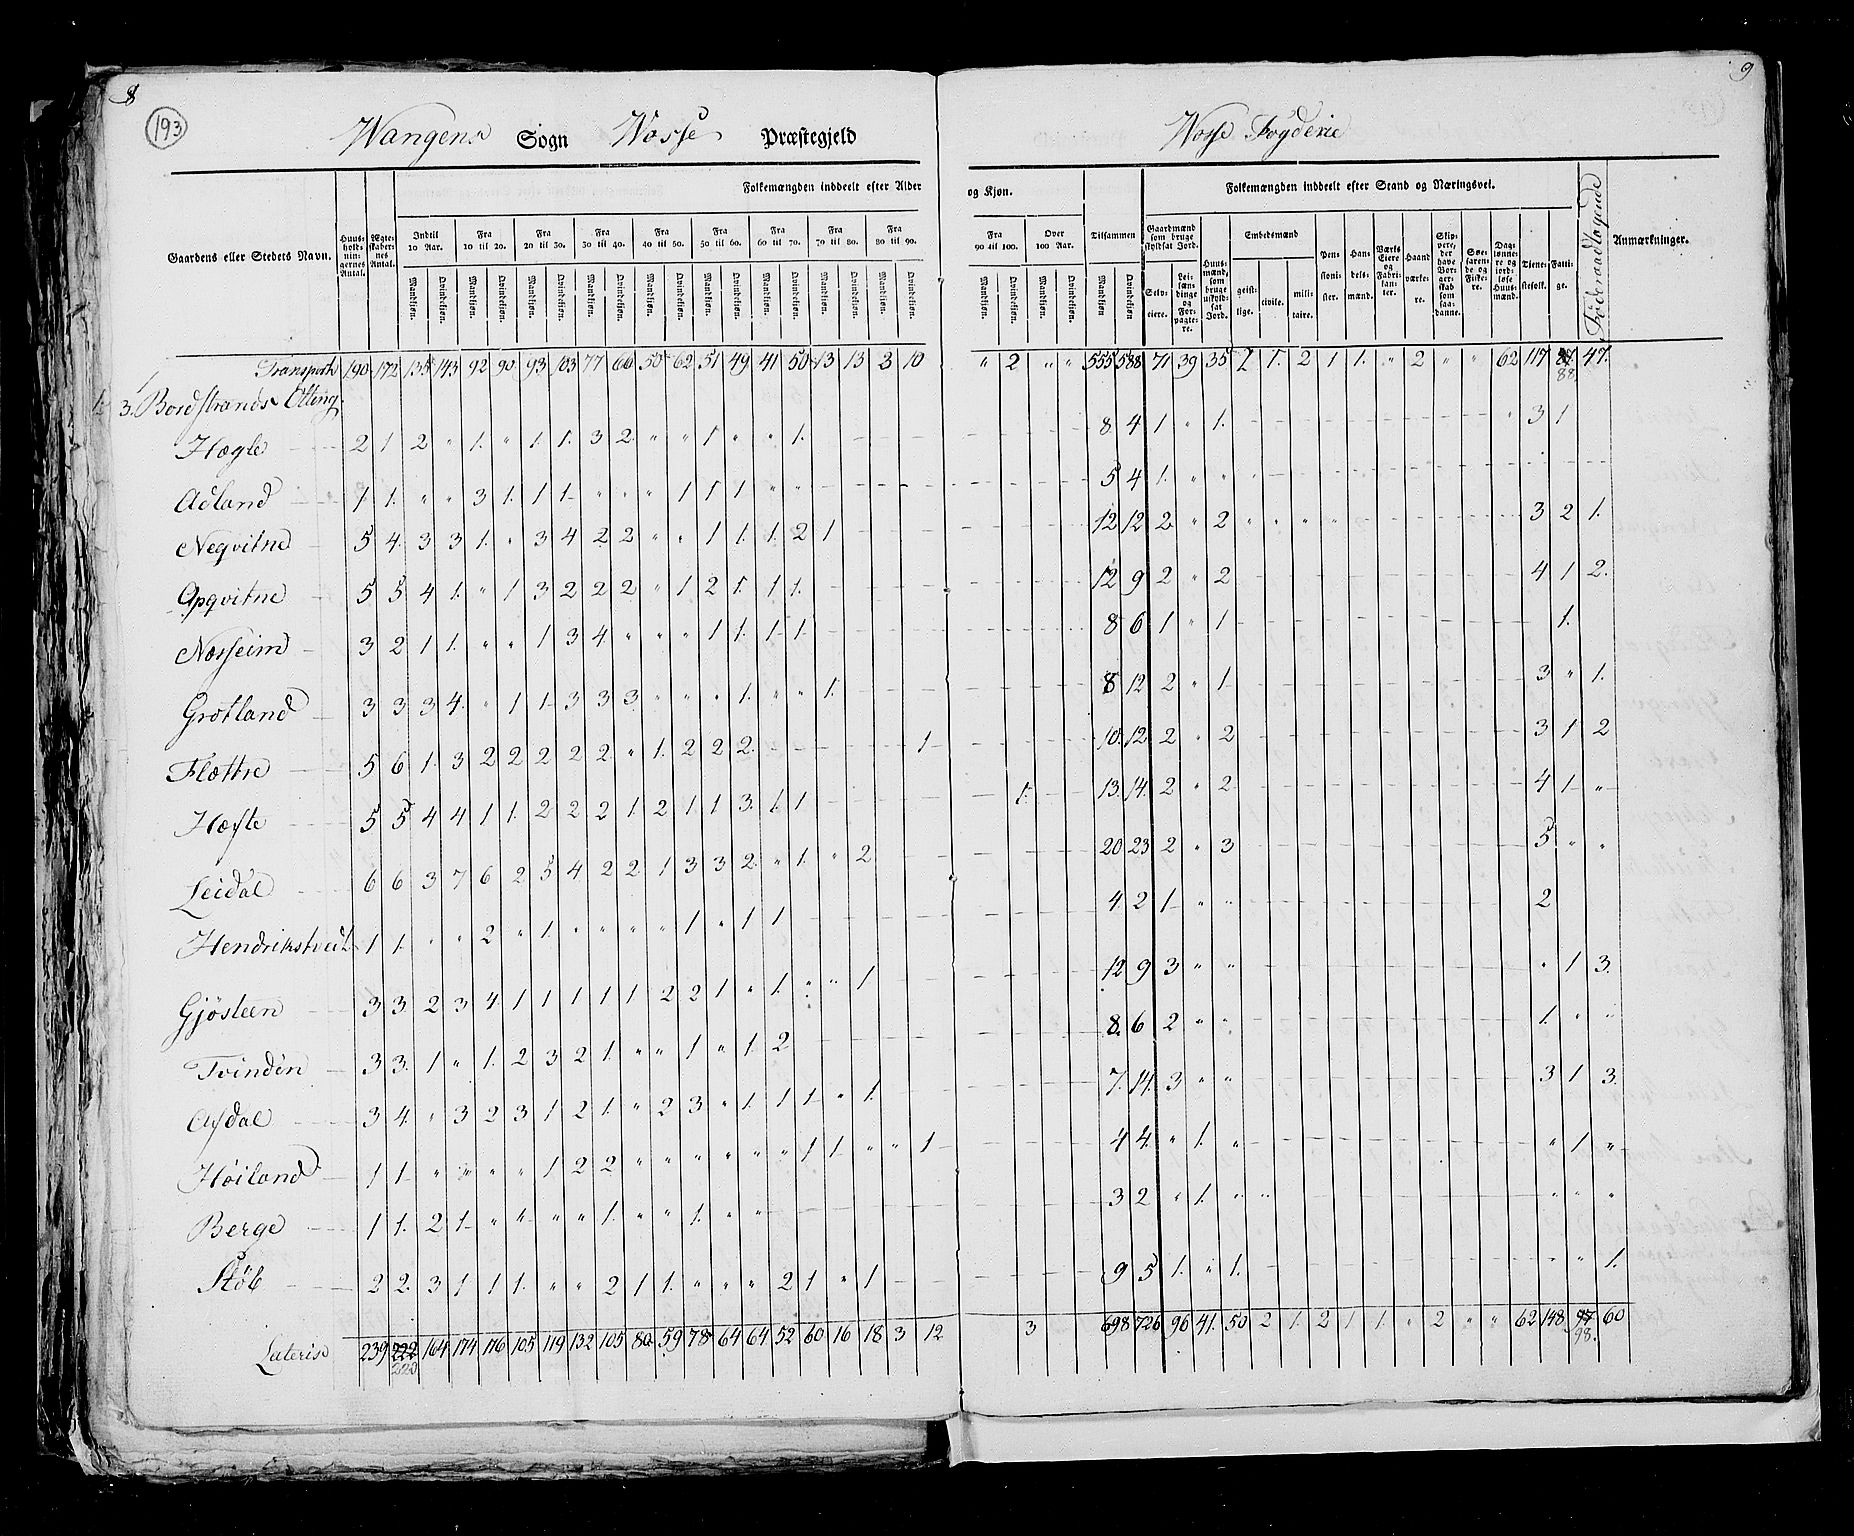 8
9
193
Wangens Sogn Wosse Præstegjeld
Wosse Fogderie
Gaardens eller Stedets Navn.
Huus-holdningernes Antal.
Ægteskabernes Antal.
Folkemængden inddeelt efter Alder og Kjøn.
Indtil 10 Aar. Fra 10 til 20. Fra 20 til 30. Fra 30 til 40. Fra 40 til 50. Fra 50 til 60. Fra 60 til 70. Fra 70 til 80. Fra 80 til 90. Fra 90 til 100. Over 100 Aar.
Mandkjøn. Qvindekjøn.
Tilsammen
Folkemængden inddeelt efter Stand og Næringsvei.
Gaardmænd som bruge skyldsat Jord.
Selveiere. Leilændinge og Forpagtere.
Huusmænd, som bruge uskyldsat Jord.
Embedsmænd
geistlige. civile. militaire.
Pensionister.
Handelsmænd.
Værks Eiere og Fabrikanter.
Haandværkere.
Skippere, der have Borgerskab som saadanne.
Søefarende og Fiskere.
Daglønnere og jordløse Huusmænd.
Tienestefolk.
Fattige.
Föderaadtagende
Anmærkninger.
Transport 190 172 135 143 92 90 93 103 77 66 50 62 51 49 41 50 13 13 3 10 " 2 " " 555 588 71 39 35 2 1. 2 1 1. " 2 " " 62 117 88. 47.
3. Bordstrands Otting.
Hægle 2 1 2 " 1. " 1. 1. 3 2 " " 1 " " 1. 8 4 1 " 1. " 3 1
Adland 1. 1. " " 3 1. 1 1 " " " 1 1 1 " " 5 4 1. " "
Neqvitne 5 4. 3 3 1. " 3 4 2 2 " " 1 1. 1. 2 1 12 12 2 " 2 3 2 1.
Opqvitne 5 5 4 1. " 1 3 2 2 2 " 1 2 1. 1 1. 12 9 2 " 2 4 1 2.
Nosseim 3 2 1 1. " " 1 3 4. " " " 1 1. 1 1. 8 6 1 " 1 1.
Grotland 3 3 3 4. " 1 1 3 3 3 " " " 1. " " 1. 8 12 2 " 1 3 " 1.
Flættre 5 6 1. 3 2 2 2 2 2 " 1. 2 2 2 1 10. 12 2 " 2 3 1 2
Hæfte 5 5 4 4 1 1. 2 2 2 1. 2 1 1 3. 1. 1 1. 13. 14. 2 " 2 4 1 "
Leidal 6 6 3 7 6 2 5 4. 2 2 1 3 3 2. " 1. " 2 20 23 2 " 3 5 " "
Hendrikstveit 1 1. " " 2 " 1. " " " " 1 " 1 1 4. 2 1 " " 2
Gjösteen 3 3. 2 3 4 1 1 1 1 1 2 2 1 " 1. " " 1 12 9 3 " " " 1 3.
Tvinden 3 3. 1 " 1. 2 3 2 1. " " 1 " 1. 2 8. 6 2 " " 1. " "
Afdal 3 4. " 3 2 3 1 2 1. " 2 3 " 1. 1 1 " 1. 7. 14. 3 " " 3 1 3.
Höiland 1 1. " " " " 1 2 2 " " " " " " 1 1. " " 1 4 4. " 1. " " 1 "
Berge 1 1. 2 1. " " " " 1. " " 1. " " 3 2 " 1. " " " " "
Stöb 2 2. 3 1 1 1. " " 2 1 1. " " " 2 1 " 1 9 5 1. " 1. " " 1.
Lateris 239 220 164 174 116 105 119 132 105 80 59 78 64 64 52 60 16 18 3 12 3 698 726 96 41. 50 2 1. 2 1 1. " 2 " " 62 148 98. 60